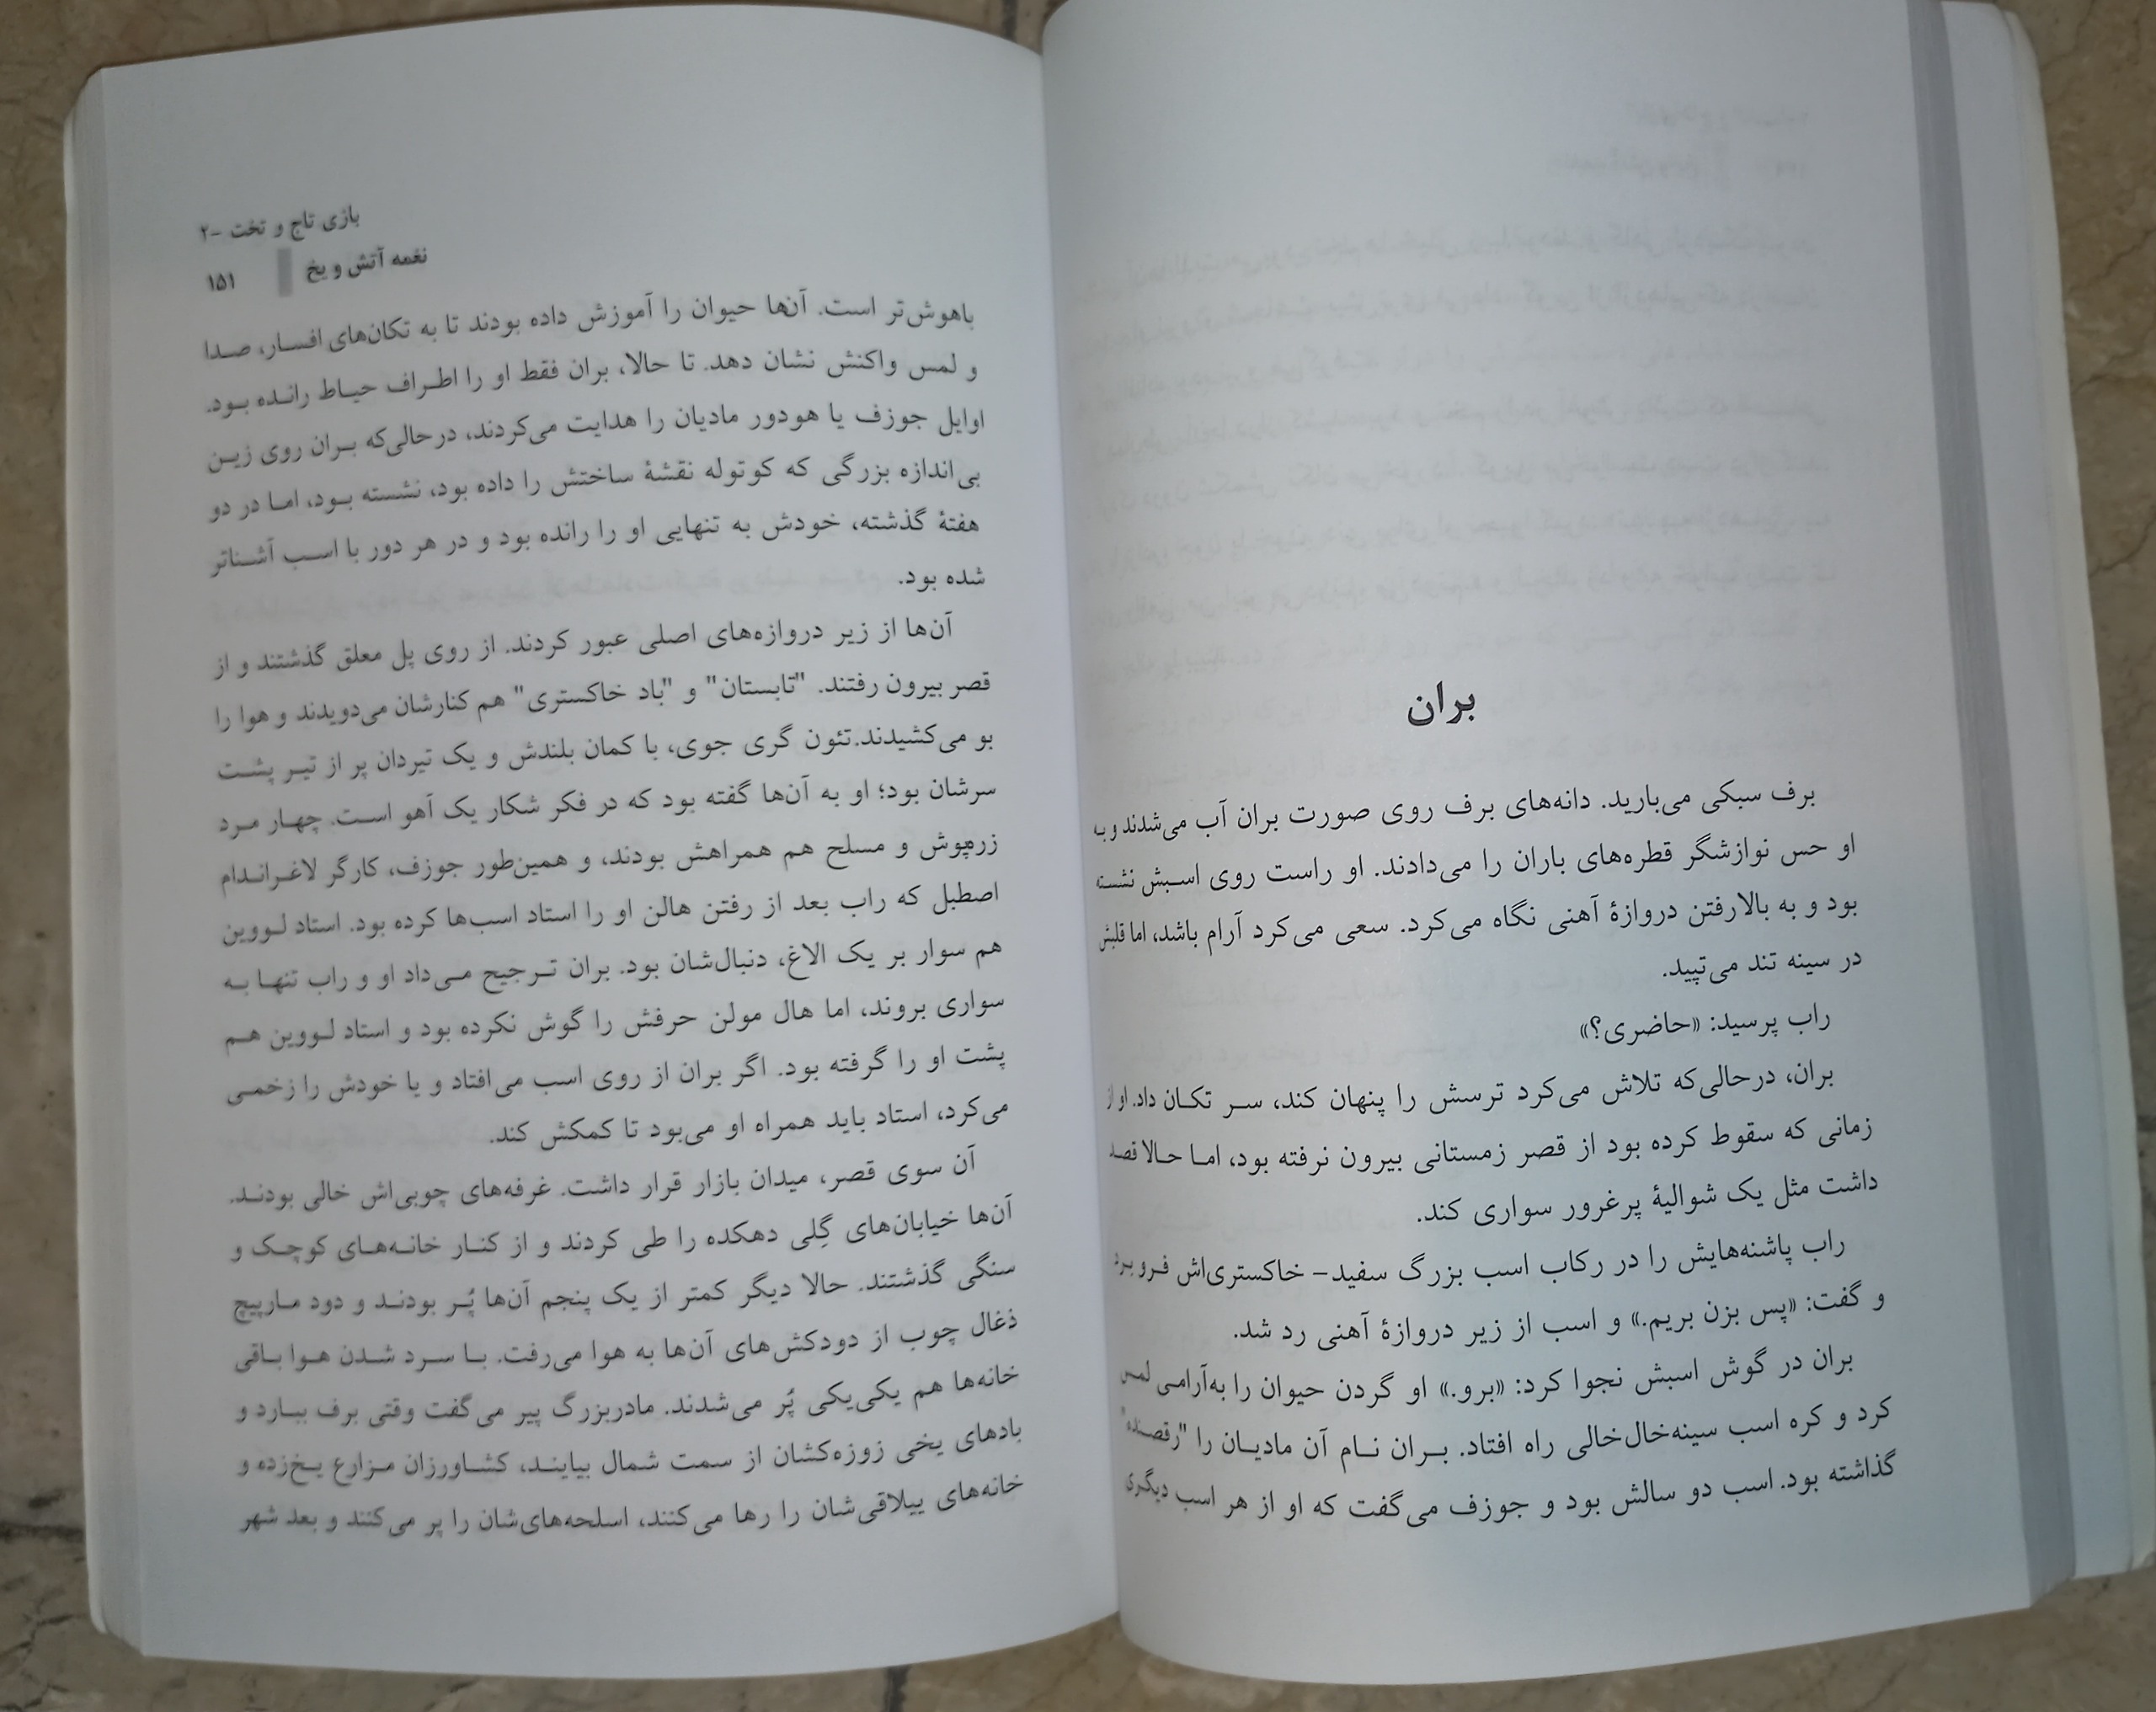 بران
برف سبکی می‌بارید. دانه‌های برف روی صورت بران آب می‌شدند و به
او حس نوازشگر قطره‌های باران را می‌دادند. او راست روی اسبش نشسته
بود و به بالارفتن دروازهٔ آهنی نگاه می‌کرد. سعی می‌کرد آرام باشد، اما قلبش
در سینه تند می‌تپید.
راب پرسید: «حاضری؟»
بران، درحالی‌که تلاش می‌کرد ترسش را پنهان کند، سر تکان داد. او از
زمانی که سقوط کرده بود از قصر زمستانی بیرون نرفته بود، اما حالا قصد
داشت مثل یک شوالیهٔ پرغرور سواری کند.
راب پاشنه‌هایش را در رکاب اسب بزرگ سفید- خاکستری‌اش فرو برد
و گفت: «پس بزن بریم.» و اسب از زیر دروازهٔ آهنی رد شد.
بران در گوش اسبش نجوا کرد: «برو.» او گردن حیوان را به‌آرامی لمس
کرد و کره اسب سینه‌خال‌خالی راه افتاد. بران نام آن مادیان را "رقصنده"
گذاشته بود. اسب دو سالش بود و جوزف می‌گفت که او از هر اسب دیگری
بازی تاج و تخت -۲
نغمه آتش و یخ ۱۵۱
باهوش‌تر است. آن‌ها حیوان را آموزش داده بودند تا به تکان‌های افسار، صدا
و لمس واکنش نشان دهد. تا حالا، بران فقط او را اطراف حیاط رانده بود.
اوایل جوزف یا هودور مادیان را هدایت می‌کردند، درحالی‌که بران روی زین
بی‌اندازه بزرگی که کوتوله نقشهٔ ساختش را داده بود، نشسته بود، اما در دو
هفتهٔ گذشته، خودش به تنهایی او را رانده بود و در هر دور با اسب آشناتر
شده بود.
آن‌ها از زیر دروازه‌های اصلی عبور کردند. از روی پل معلق گذشتند و از
قصر بیرون رفتند. "تابستان" و "باد خاکستری" هم کنارشان می‌دویدند و هوا را
بو می‌کشیدند.تئون گری جوی، با کمان بلندش و یک تیردان پر از تیر پشت
سرشان بود؛ او به آن‌ها گفته بود که در فکر شکار یک آهو است. چهار مرد
زره‌پوش و مسلح هم همراهش بودند، و همین‌طور جوزف، کارگر لاغراندام
اصطبل که راب بعد از رفتن هالن او را استاد اسب‌ها کرده بود. استاد لووین
هم سوار بر یک الاغ، دنبال‌شان بود. بران ترجیح می‌داد او و راب تنها به
سواری بروند، اما هال مولن حرفش را گوش نکرده بود و استاد لووین هم
پشت او را گرفته بود. اگر بران از روی اسب می‌افتاد و یا خودش را زخمی
می‌کرد، استاد باید همراه او می‌بود تا کمکش کند.
آن سوی قصر، میدان بازار قرار داشت. غرفه‌های چوبی‌اش خالی بودند.
آن‌ها خیابان‌های گِلی دهکده را طی کردند و از کنار خانه‌های کوچک و
سنگی گذشتند. حالا دیگر کمتر از یک پنجم آن‌ها پُر بودند و دود مارپیچ
ذغال چوب از دودکش‌های آن‌ها به هوا می‌رفت. با سرد شدن هوا باقی
خانه‌ها هم یکی‌یکی پُر می‌شدند. مادربزرگ پیر می‌گفت وقتی برف ببارد و
بادهای یخی زوزه‌کشان از سمت شمال بیایند، کشاورزان مزارع یخ‌زده و
خانه‌های ییلاقی‌شان را رها می‌کنند، اسلحه‌های‌شان را پر می‌کنند و بعد شهر